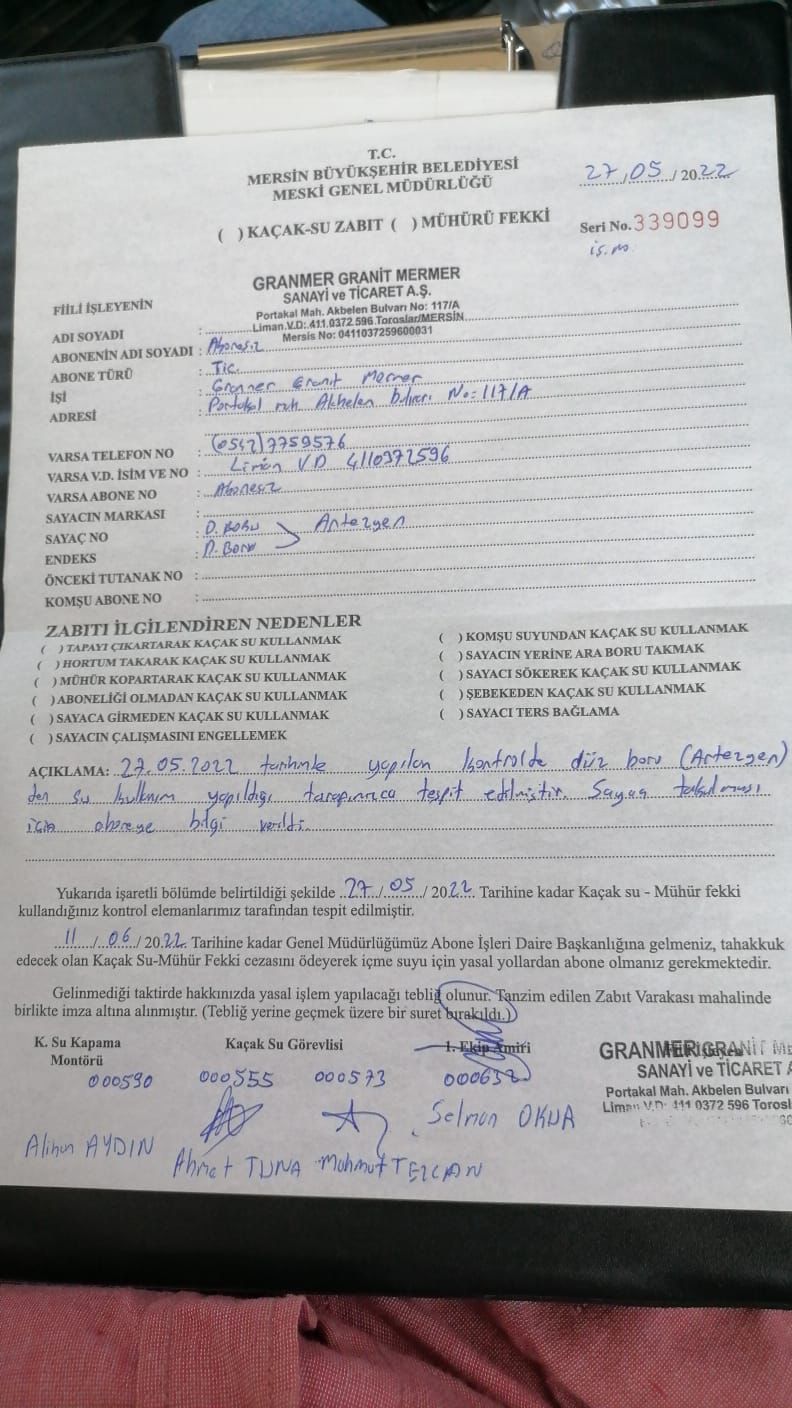 T.C.
MERSİN BÜYÜKŞEHİR BELEDİYESİ
MESKİ GENEL MÜDÜRLÜĞÜ
27/05/2022
( ) KAÇAK-SU ZABIT ( ) MÜHÜRÜ FEKKİ
Seri No. 339099
iş.m
GRANMER GRANİT MERMER
SANAYİ ve TİCARET A.Ş.
Portakal Mah. Akbelen Bulvarı No: 117/A
Liman.V.D: 411 0372 596 Toroslar/MERSİN
Mersis No: 0411037259600031
FİİLİ İŞLEYENİN
ADI SOYADI :
ABONENİN ADI SOYADI : Abonesiz
ABONE TÜRÜ : Tic.
İŞİ : Granmer Granit Mermer
ADRESİ : Portakal mah Akbelen bulvarı No: 117/A
VARSA TELEFON NO : (0542) 7759576
VARSA V.D. İSİM VE NO : Liman V.D 4110372596
VARSA ABONE NO : Abonesiz
SAYACIN MARKASI :
SAYAÇ NO : D. BORU Artezyen
ENDEKS : D. Boru
ÖNCEKİ TUTANAK NO :
KOMŞU ABONE NO :
ZABITI İLGİLENDİREN NEDENLER
( ) TAPAYI ÇIKARTARAK KAÇAK SU KULLANMAK
( ) HORTUM TAKARAK KAÇAK SU KULLANMAK
( ) MÜHÜR KOPARTARAK KAÇAK SU KULLANMAK
( ) ABONELİĞİ OLMADAN KAÇAK SU KULLANMAK
( ) SAYACA GİRMEDEN KAÇAK SU KULLANMAK
( ) SAYACIN ÇALIŞMASINI ENGELLEMEK
( ) KOMŞU SUYUNDAN KAÇAK SU KULLANMAK
( ) SAYACIN YERİNE ARA BORU TAKMAK
( ) SAYACI SÖKEREK KAÇAK SU KULLANMAK
( ) ŞEBEKEDEN KAÇAK SU KULLANMAK
( ) SAYACI TERS BAĞLAMA
AÇIKLAMA: 27.05.2022 tarihinde yapılan kontrolde düz boru (Artezyen)
den su kullanım yapıldığı tarafımızca tespit edilmiştir. Sayaç takılması
için aboneye bilgi verildi.
Yukarıda işaretli bölümde belirtildiği şekilde 27/05/2022 Tarihine kadar Kaçak su - Mühür fekki
kullandığınız kontrol elemanlarımız tarafından tespit edilmiştir.
11/06/2022 Tarihine kadar Genel Müdürlüğümüz Abone İşleri Daire Başkanlığına gelmeniz, tahakkuk
edecek olan Kaçak Su-Mühür Fekki cezasını ödeyerek içme suyu için yasal yollardan abone olmanız gerekmektedir.
Gelinmediği taktirde hakkınızda yasal işlem yapılacağı tebliğ olunur. Tanzim edilen Zabıt Varakası mahalinde
birlikte imza altına alınmıştır. (Tebliğ yerine geçmek üzere bir suret bırakıldı.)
K. Su Kapama
Montörü
000590
Alihan AYDIN
Kaçak Su Görevlisi
000555 000573
Ahmet TUNA Mahmut TEZCAN
1. Ekip Amiri
000632
Selman OKUA
GRANMER GRANİT ME
SANAYİ ve TİCARET A
Portakal Mah. Akbelen Bulvarı
Liman V.D: 411 0372 596 Toros